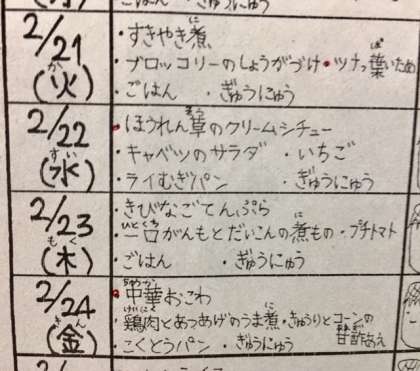 ごはん ・ぎゅうにゅう
2/21
(火)
か
・すきやき煮
に
・ブロッコリーのしょうがづけ・ツナっ葉いため
ぱ
・ごはん ・ぎゅうにゅう
2/22
(水)
すい
・ほうれん草のクリームシチュー
そう
・キャベツのサラダ ・いちご
・ライむぎパン ・ぎゅうにゅう
2/23
(木)
もく
・きびなごてんぷら
・一口がんもとだいこんの煮もの・プチトマト
ひとくち に
・ごはん ・ぎゅうにゅう
2/24
(金)
きん
・中華おこわ
ちゅうか
・鶏肉とあつあげのうま煮・きゅうりとコーンの甘酢あえ
けいにく に あまず
・こくとうパン ・ぎゅうにゅう